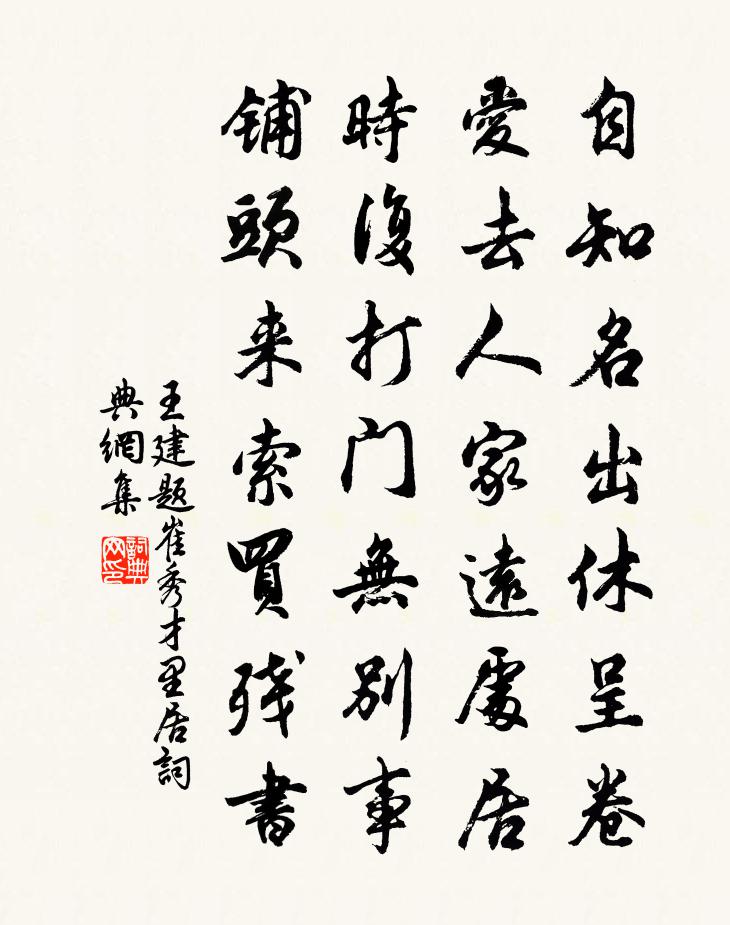 自知名出休呈卷
愛去人家遠處居
時復打门無別事
铺頭来索買残書
王建题崔秀才里居詞
典網集
詞典网印